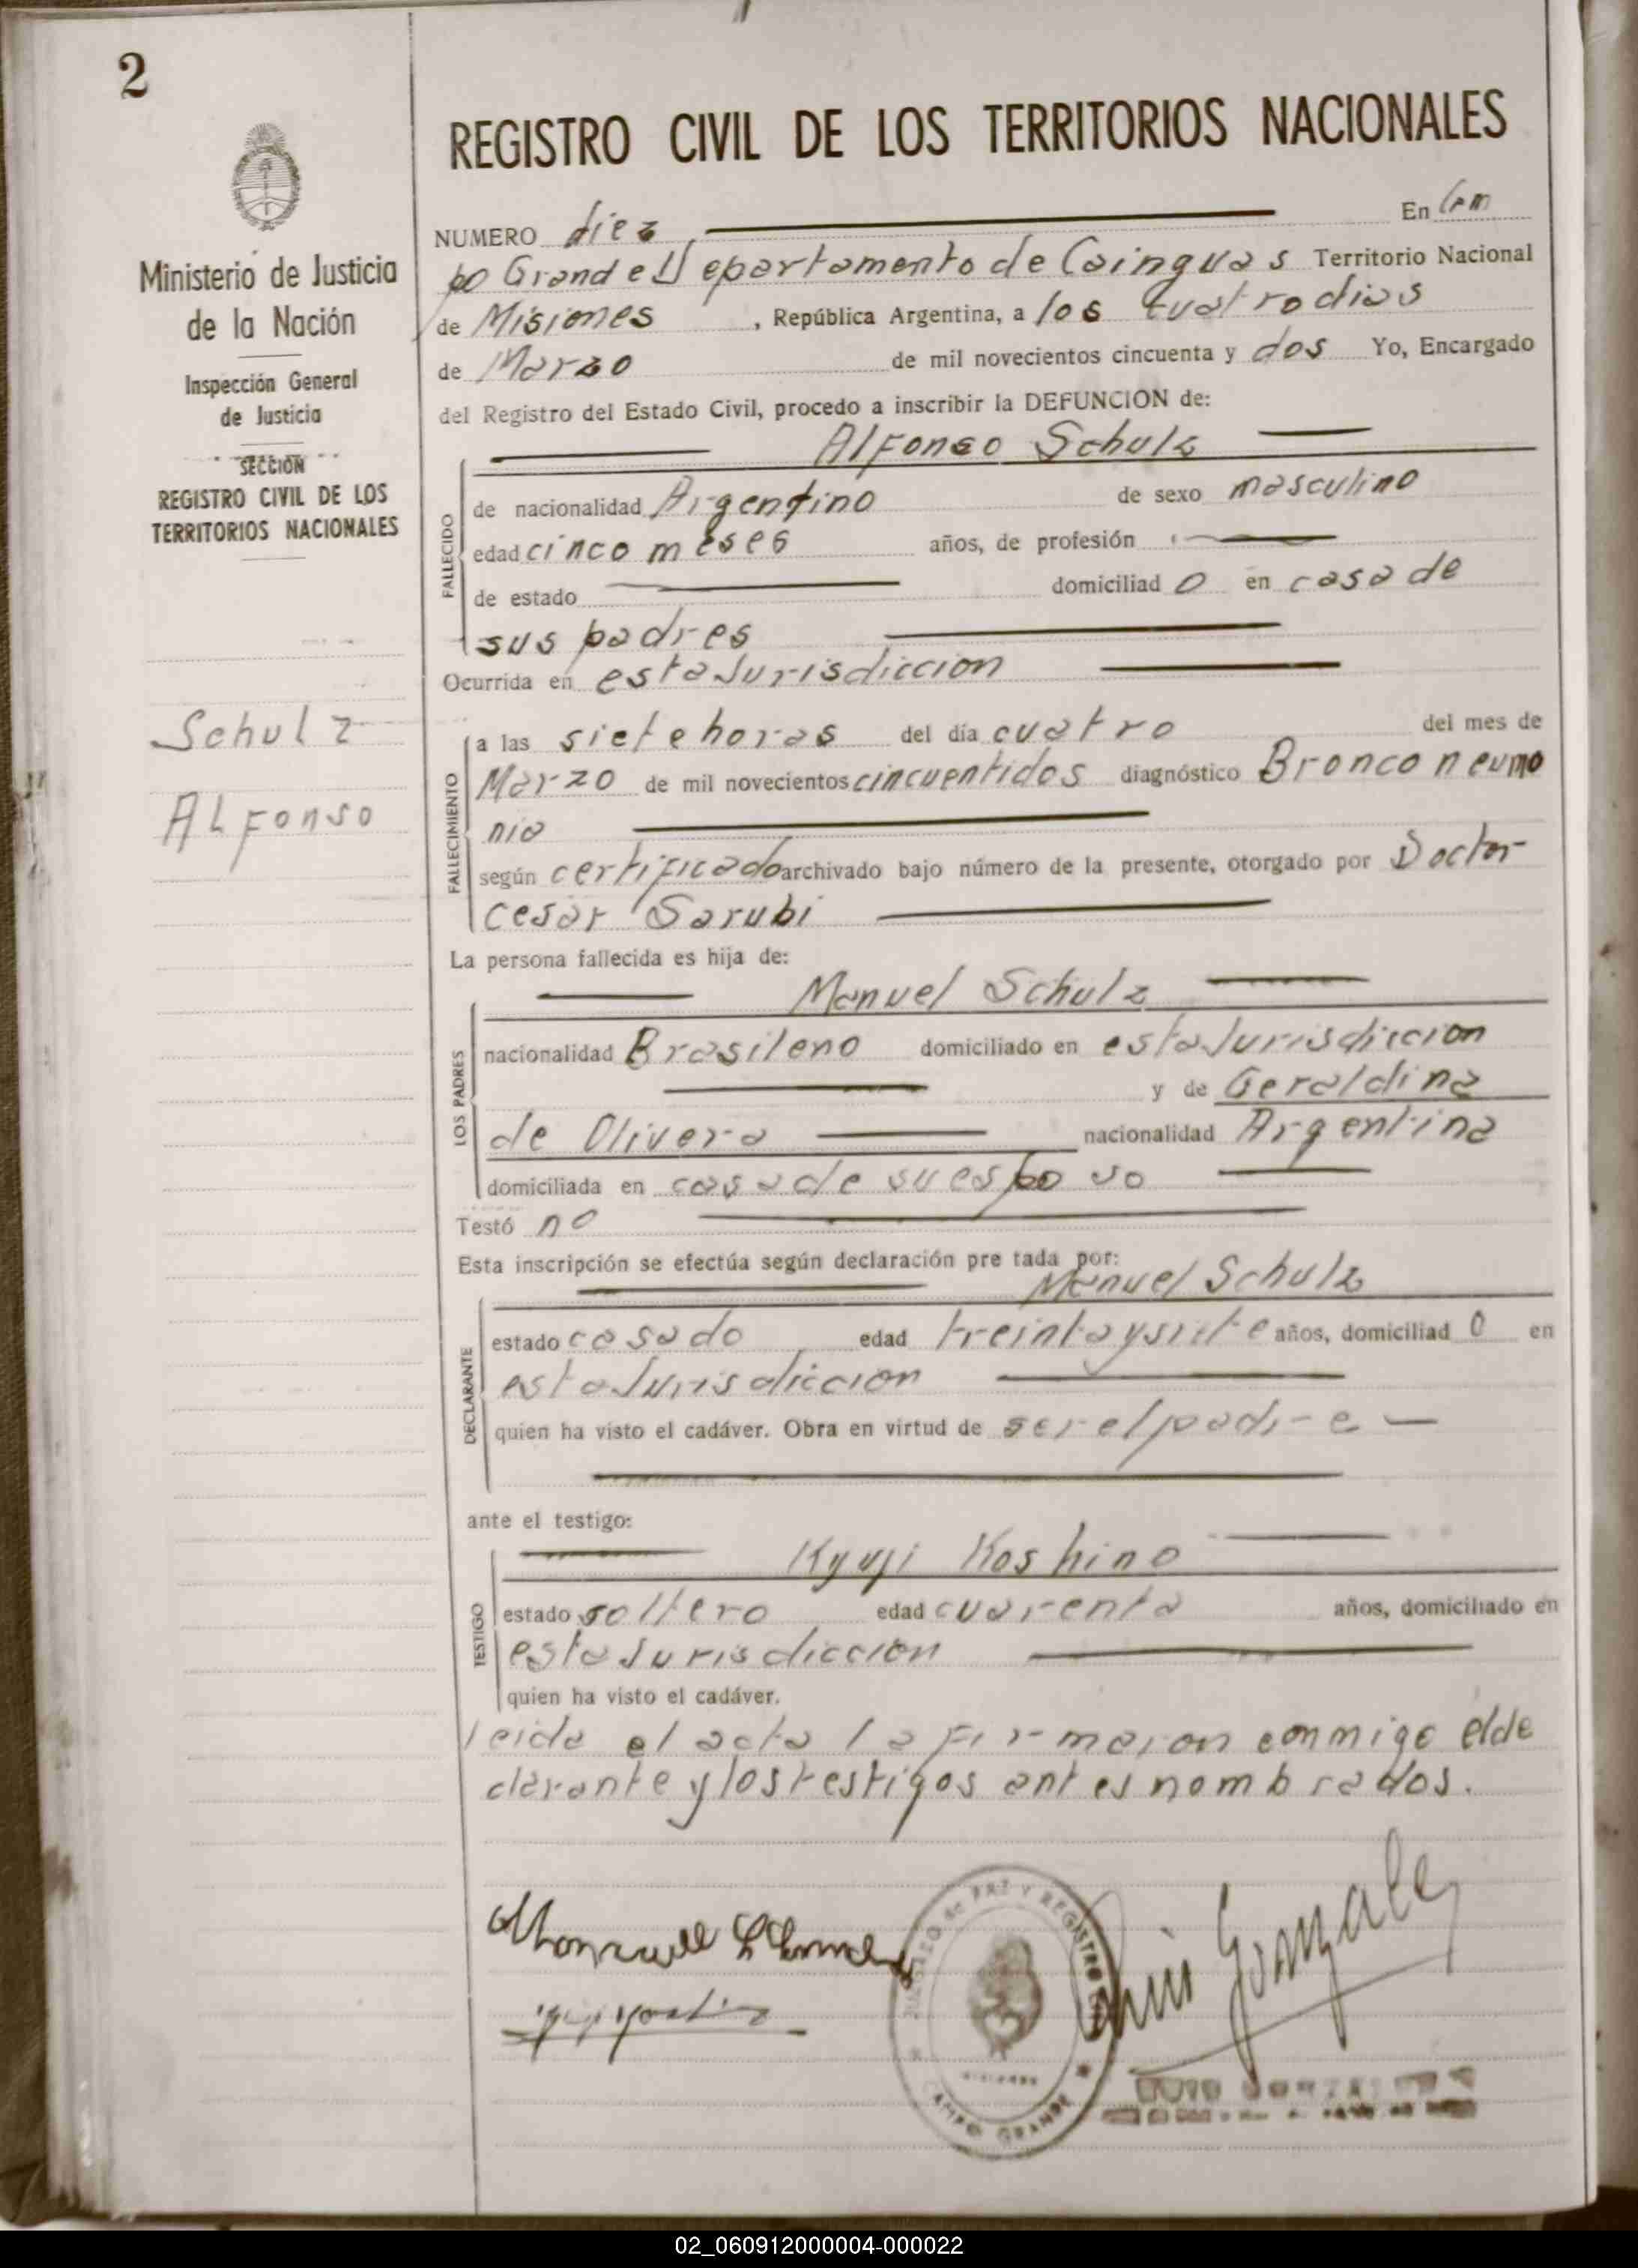 2
REGISTRO CIVIL DE LOS TERRITORIOS NACIONALES
Ministerio de Justicia
de la Nación
Inspección General
de Justicia
SECCIÓN
REGISTRO CIVIL DE LOS
TERRITORIOS NACIONALES
Schulz
ALFonso
NUMERO diez En Cam
po Grande Departamento de Cainguas Territorio Nacional
de Misiones, República Argentina, a los cuatro dias
de Marzo de mil novecientos cincuenta y dos Yo, Encargado
del Registro del Estado Civil, procedo a inscribir la DEFUNCION de:
Alfonso Schulz
FALLECIDO
de nacionalidad Argentino de sexo masculino
edad cinco meses años, de profesión
de estado domiciliad o en casa de
sus padres
Ocurrida en esta Jurisdiccion
FALLECIMIENTO
a las siete horas del día cuatro del mes de
Marzo de mil novecientos cincuentidos diagnóstico Bronconeumo
nia
según certificado archivado bajo número de la presente, otorgado por Doctor
Cesar Sarubi
La persona fallecida es hija de:
Manuel Schulz
LOS PADRES
nacionalidad Brasileno domiciliado en esta Jurisdiccion
y de Geraldina
de Olivera nacionalidad Argentina
domiciliada en casa de su esposo
Testó no
Esta inscripción se efectúa según declaración pre tada por:
Manuel Schulz
DECLARANTE
estado casado edad treinta y siete años, domiciliad o en
esta Jurisdiccion
quien ha visto el cadáver. Obra en virtud de ser el padre
ante el testigo:
Kyuji Koshino
TESTIGO
estado soltero edad cuarenta años, domiciliado en
esta Jurisdiccion
quien ha visto el cadáver.
leida el acta la firmaron conmigo el de
clarante y los testigos antes nombrados.
JUZGADO de PAZ Y REGISTRO
MISIONES
CAMPO GRANDE
Luis Gonzalez
02_060912000004-000022